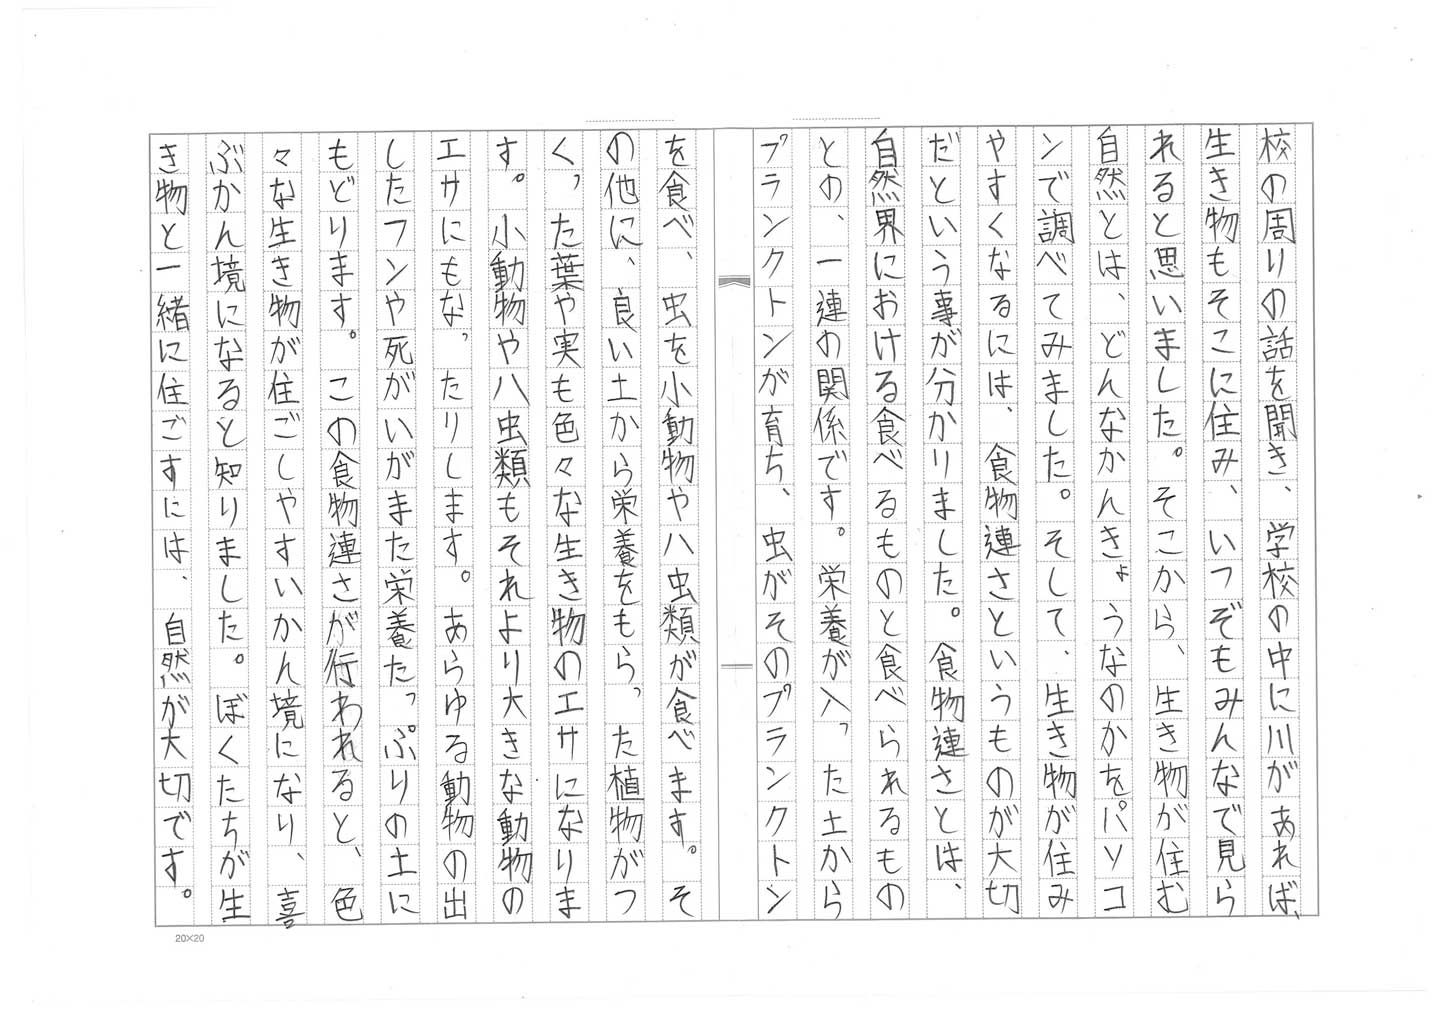 校の周りの話を聞き、学校の中に川があれば、
生き物もそこに住み、いつぞもみんなで見ら
れると思いました。そこから、生き物が住む
自然とは、どんなかんきょうなのかをパソコ
ンで調べてみました。そして、生き物が住み
やすくなるには、食物連さというものが大切
だという事が分かりました。食物連さとは、
自然界における食べるものと食べられるもの
との、一連の関係です。栄養が入った土から
プランクトンが育ち、虫がそのプランクトン
を食べ、虫を小動物やハ虫類が食べます。そ
の他に、良い土から栄養をもらった植物がつ
くった葉や実も色々な生き物のエサになりま
す。小動物やハ虫類もそれより大きな動物の
エサにもなったりします。あらゆる動物の出
したフンや死がいがまた栄養たっぷりの土に
もどります。この食物連さが行われると、色
々な生き物が住ごしやすいかん境になり、喜
ぶかん境になると知りました。ぼくたちが生
き物と一緒に住ごすには、自然が大切です。
20×20